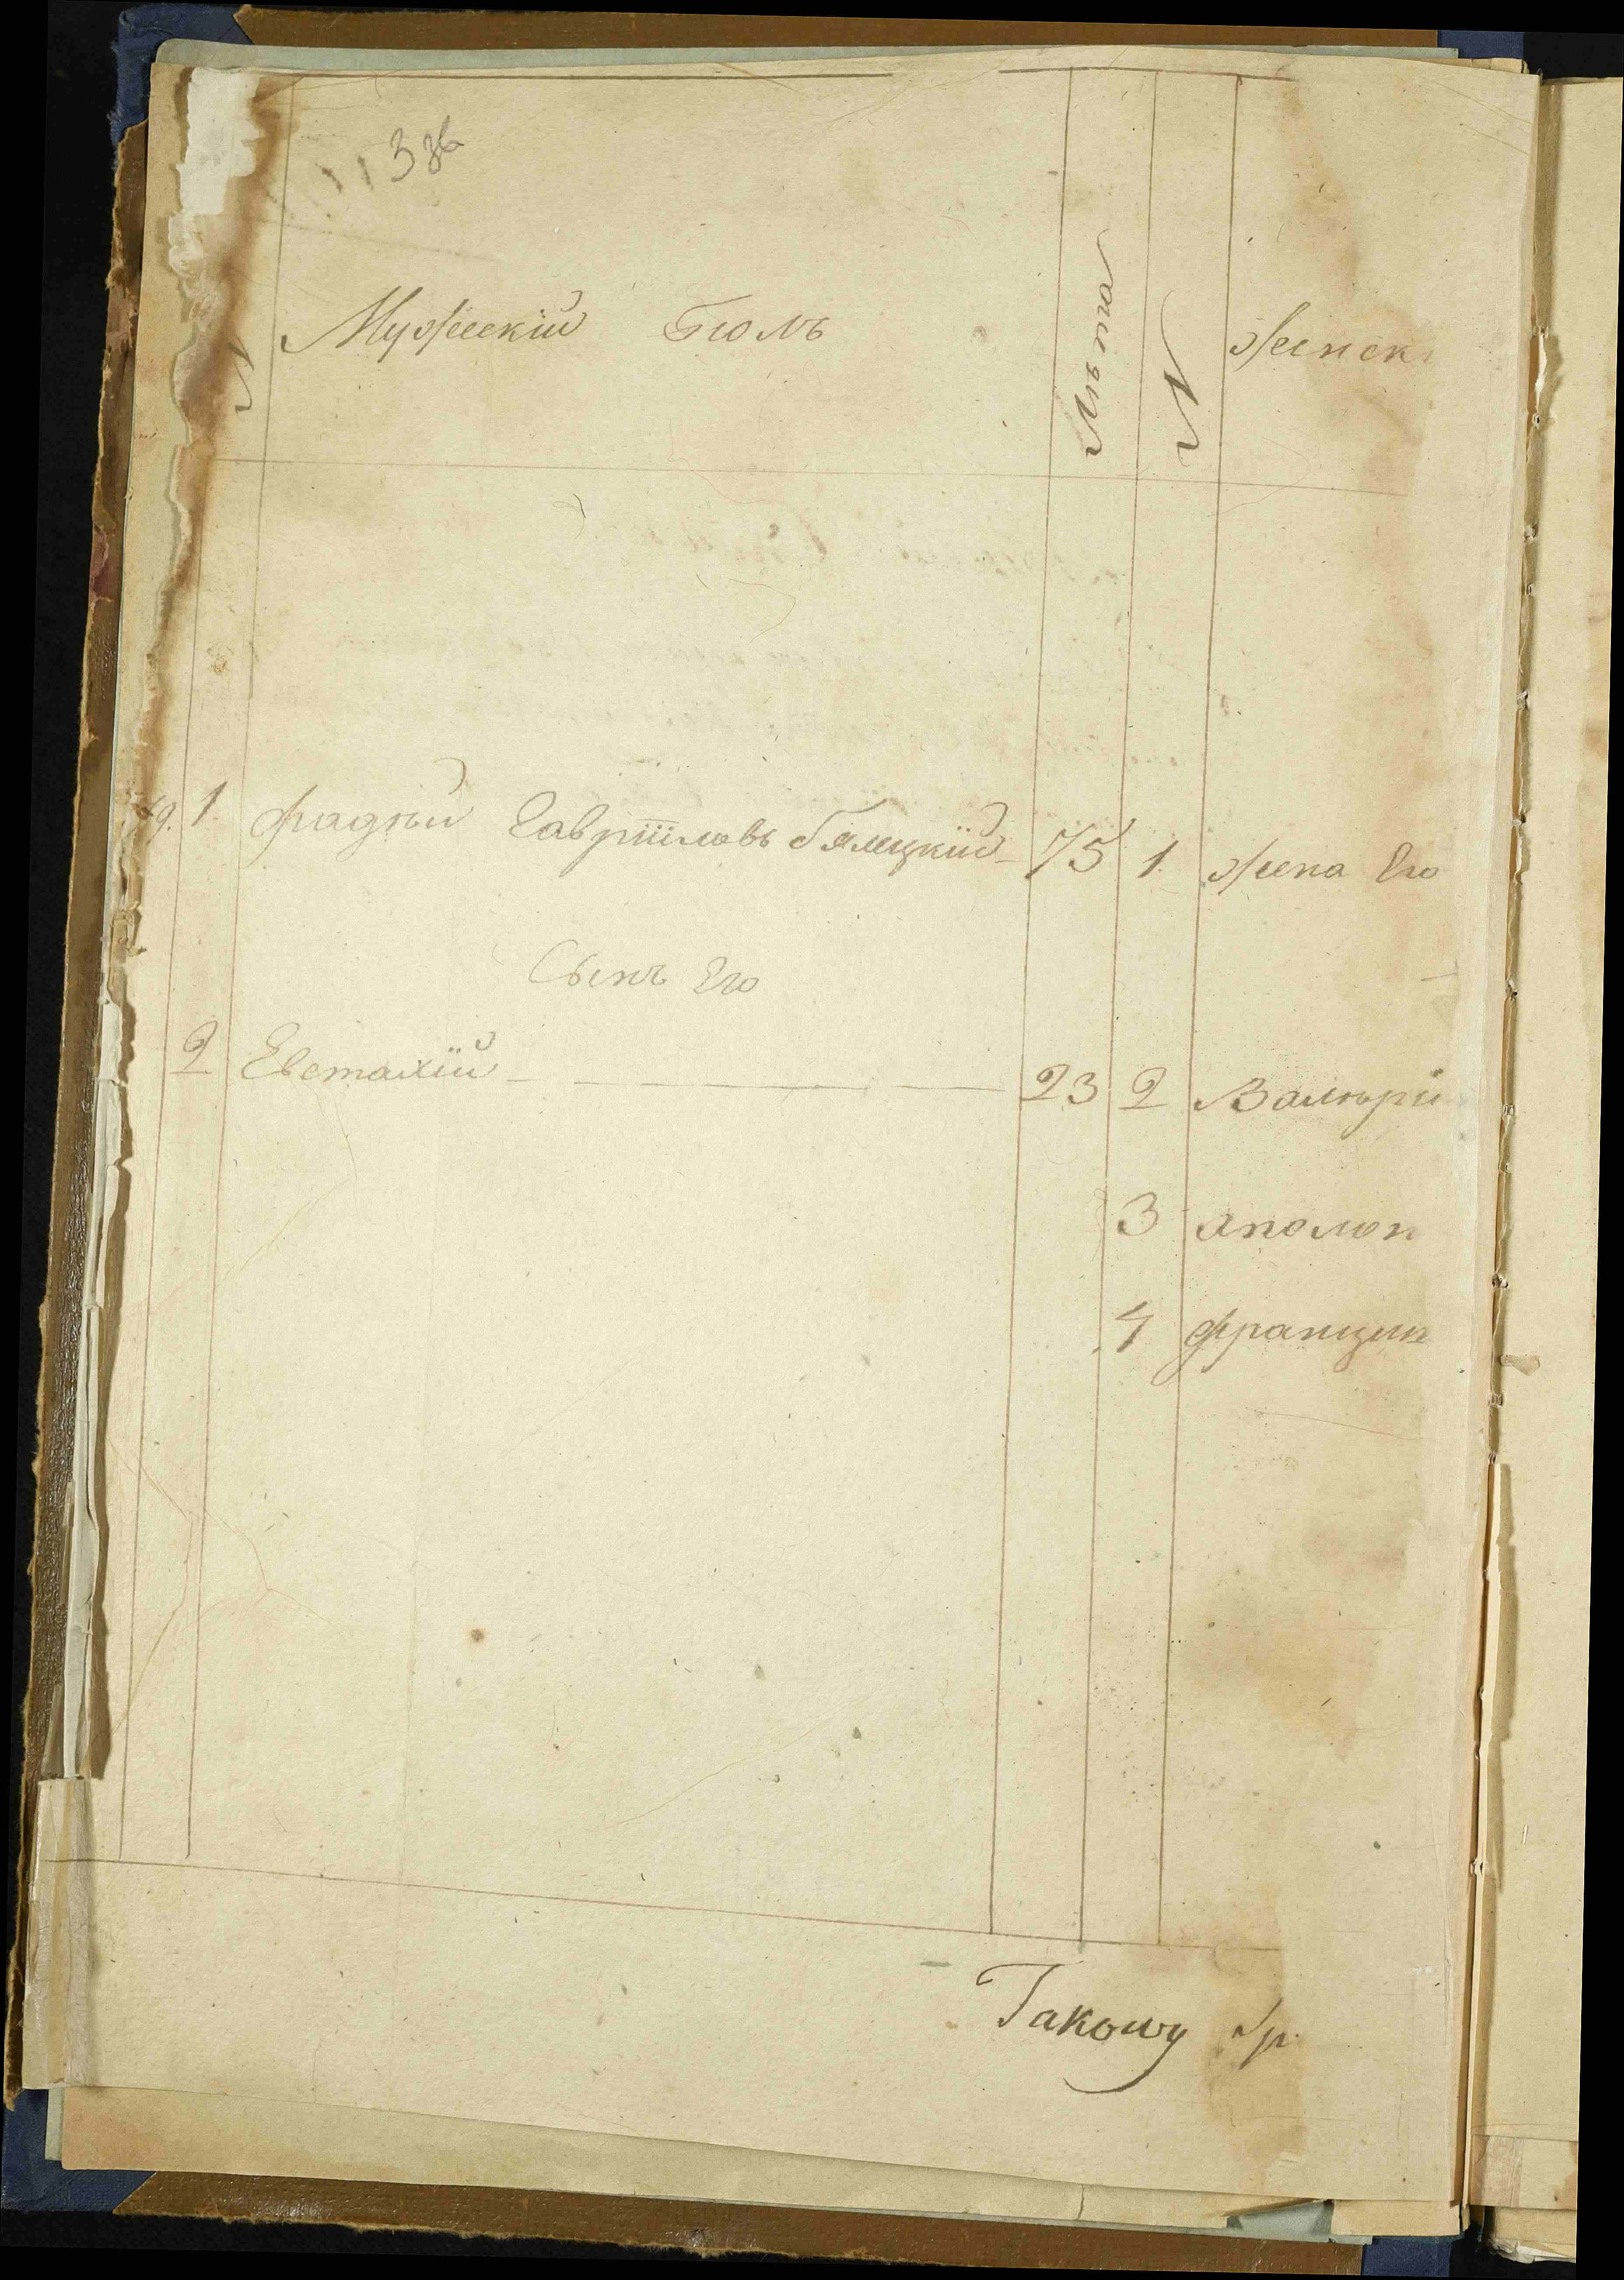 3 зв
N Мужескій Полъ Лѣта N Женск
1. Фадѣй Гавріиловъ Бялецкій 75 1. Жена Его
Сынъ Его
2 Евстахій 23 2 Валѣрі
3 Аполон
4 Францин
Такому